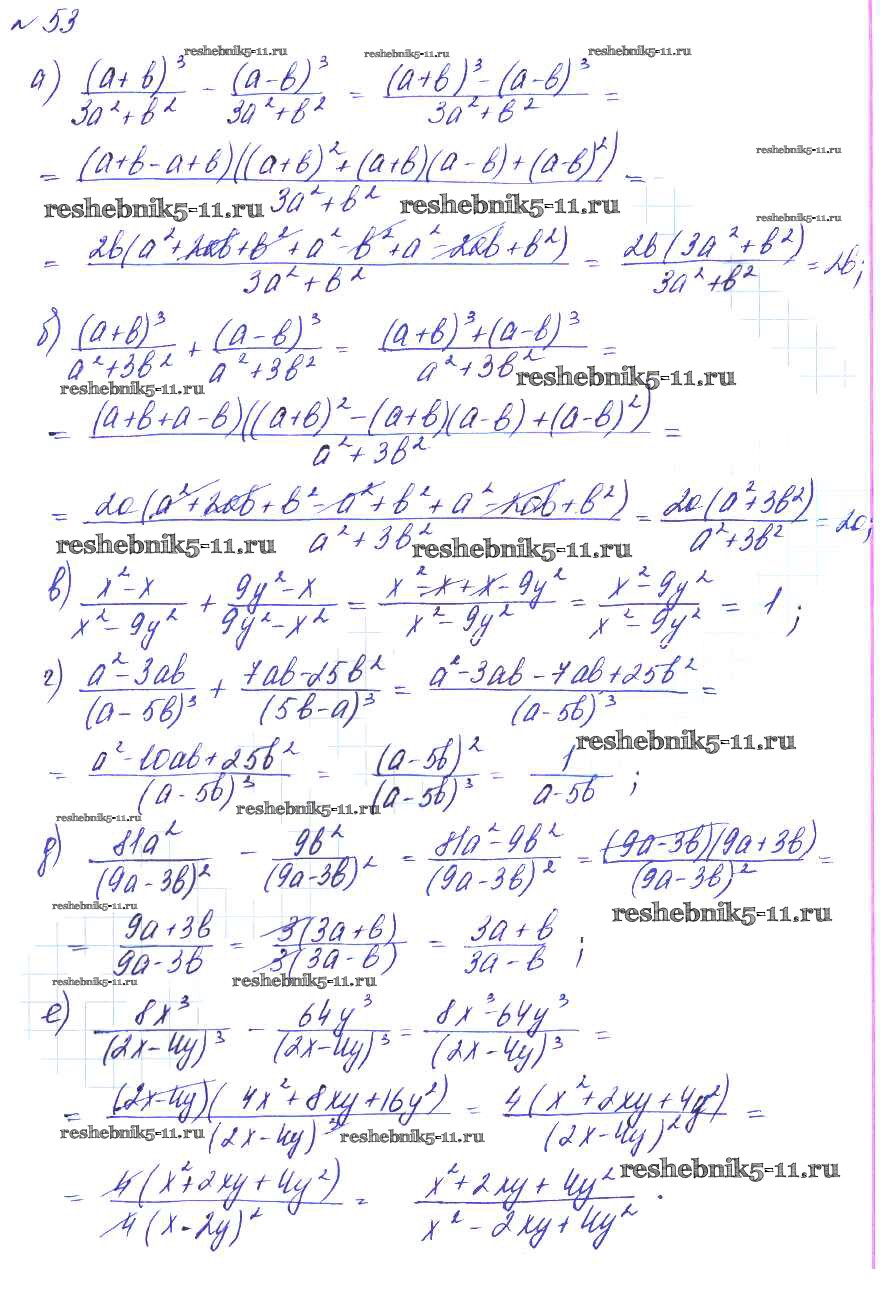 № 53
reshebnik5-11.ru reshebnik5-11.ru reshebnik5-11.ru
а) (a+b)³/(3a²+b²) - (a-b)³/(3a²+b²) = ((a+b)³-(a-b)³)/(3a²+b²) =
reshebnik5-11.ru
= (a+b-a+b)((a+b)²+(a+b)(a-b)+(a-b)²)/(3a²+b²) =
reshebnik5-11.ru reshebnik5-11.ru
reshebnik5-11.ru
= 2b(a²+2ab+b²+a²-b²+a²-2ab+b²)/(3a²+b²) = 2b(3a²+b²)/(3a²+b²) = 2b;
б) (a+b)³/(a²+3b²) + (a-b)³/(a²+3b²) = ((a+b)³+(a-b)³)/(a²+3b²) =
reshebnik5-11.ru reshebnik5-11.ru
= (a+b+a-b)((a+b)²-(a+b)(a-b)+(a-b)²)/(a²+3b²) =
= 2a(a²+2ab+b²-a²+b²+a²-2ab+b²)/(a²+3b²) = 2a(a²+3b²)/(a²+3b²) = 2a;
reshebnik5-11.ru reshebnik5-11.ru
в) (x²-x)/(x²-9y²) + (9y²-x)/(9y²-x²) = (x²-x+x-9y²)/(x²-9y²) = (x²-9y²)/(x²-9y²) = 1;
г) (a²-3ab)/(a-5b)³ + (7ab-25b²)/(5b-a)³ = (a²-3ab-7ab+25b²)/(a-5b)³ =
reshebnik5-11.ru
= (a²-10ab+25b²)/(a-5b)³ = (a-5b)²/(a-5b)³ = 1/(a-5b);
reshebnik5-11.ru
reshebnik5-11.ru
д) 81a²/(9a-3b)² - 9b²/(9a-3b)² = (81a²-9b²)/(9a-3b)² = (9a-3b)(9a+3b)/(9a-3b)² =
reshebnik5-11.ru reshebnik5-11.ru
= (9a+3b)/(9a-3b) = 3(3a+b)/3(3a-b) = (3a+b)/(3a-b);
reshebnik5-11.ru reshebnik5-11.ru
е) 8x³/(2x-4y)³ - 64y³/(2x-4y)³ = (8x³-64y³)/(2x-4y)³ =
= (2x-4y)(4x²+8xy+16y²)/(2x-4y)³ = 4(x²+2xy+4y²)/(2x-4y)² =
reshebnik5-11.ru reshebnik5-11.ru
reshebnik5-11.ru
= 4(x²+2xy+4y²)/4(x-2y)² = (x²+2xy+4y²)/(x²-2xy+4y²).